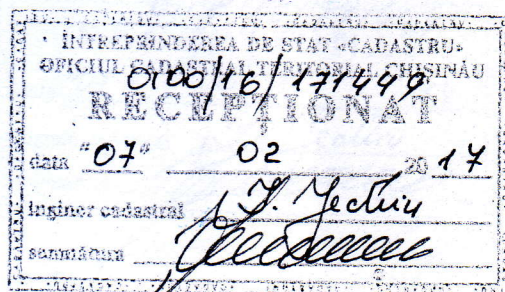 ÎNTREPRINDEREA DE STAT «CADASTRU»
OFICIUL CADASTRAL TERITORIAL CHIŞINĂU
0100/16/171449
RECEPŢIONAT
data "07" 02 20 17
inginer cadastral
semnătura